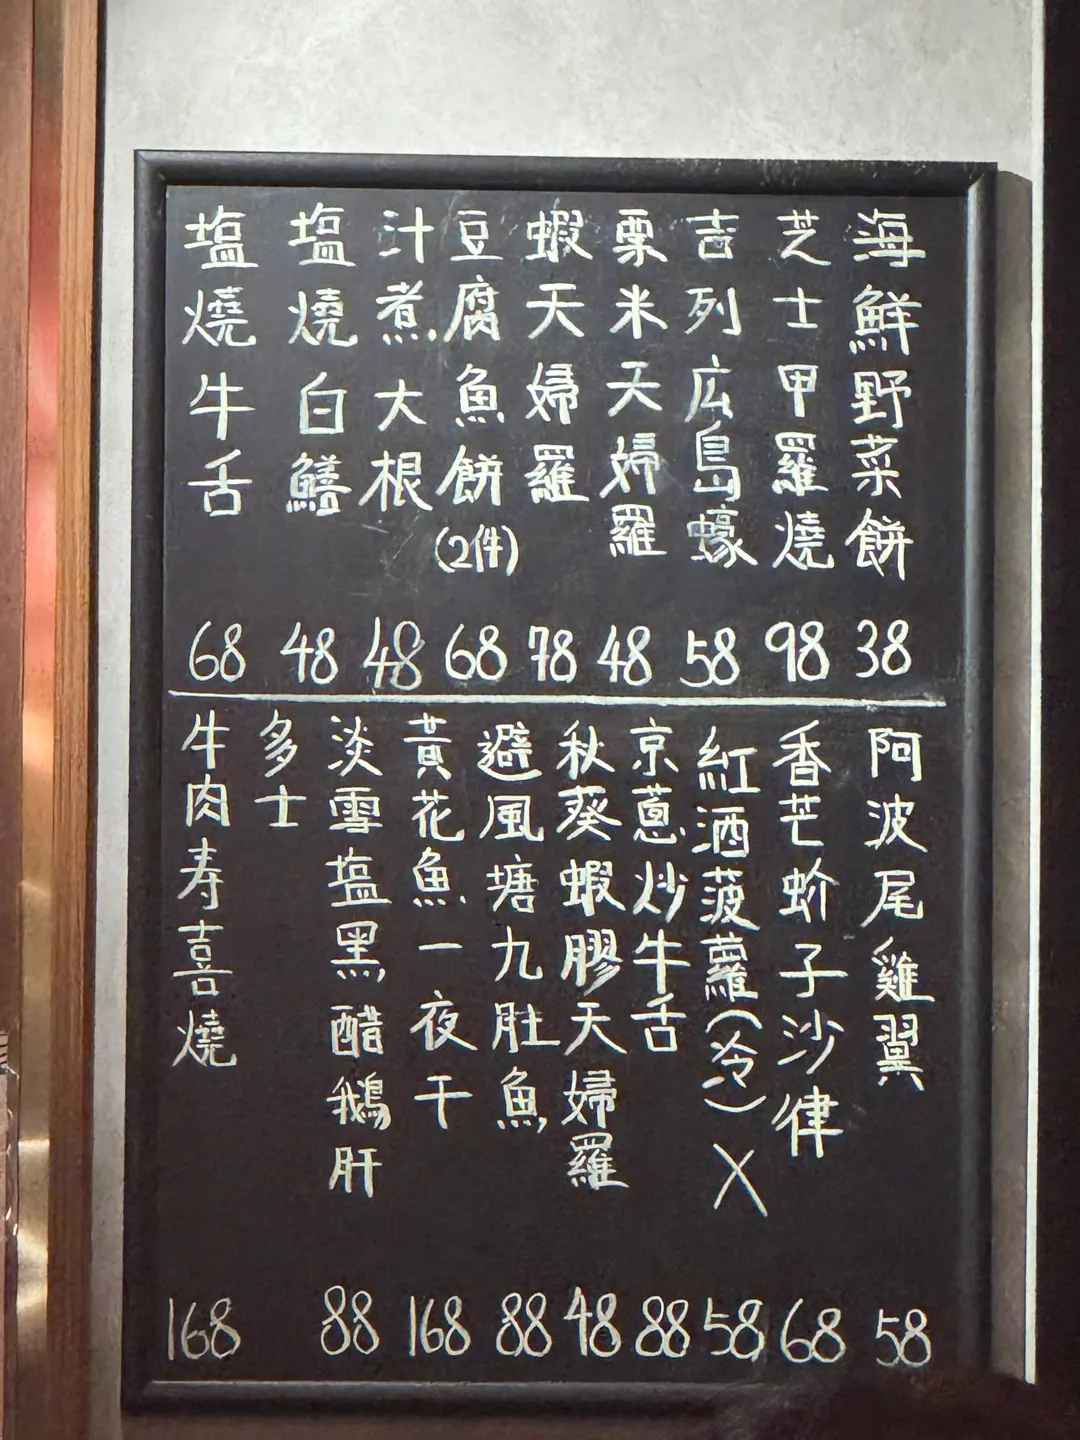 海鮮野菜餅 38
芝士甲羅燒 98
吉列広島蠔 58
粟米天婦羅 48
蝦天婦羅 78
豆腐魚餅(2件) 68
汁煮大根 48
塩燒白鱔 48
塩燒牛舌 68
阿波尾雞翼 58
香芒蚧子沙律 68
紅酒菠蘿(冷)X 58
京蔥炒牛舌 88
秋葵蝦膠天婦羅 48
避風塘九肚魚 88
黃花魚一夜干 168
淡雪塩黑醋鵝肝 88
多士
牛肉寿喜燒 168